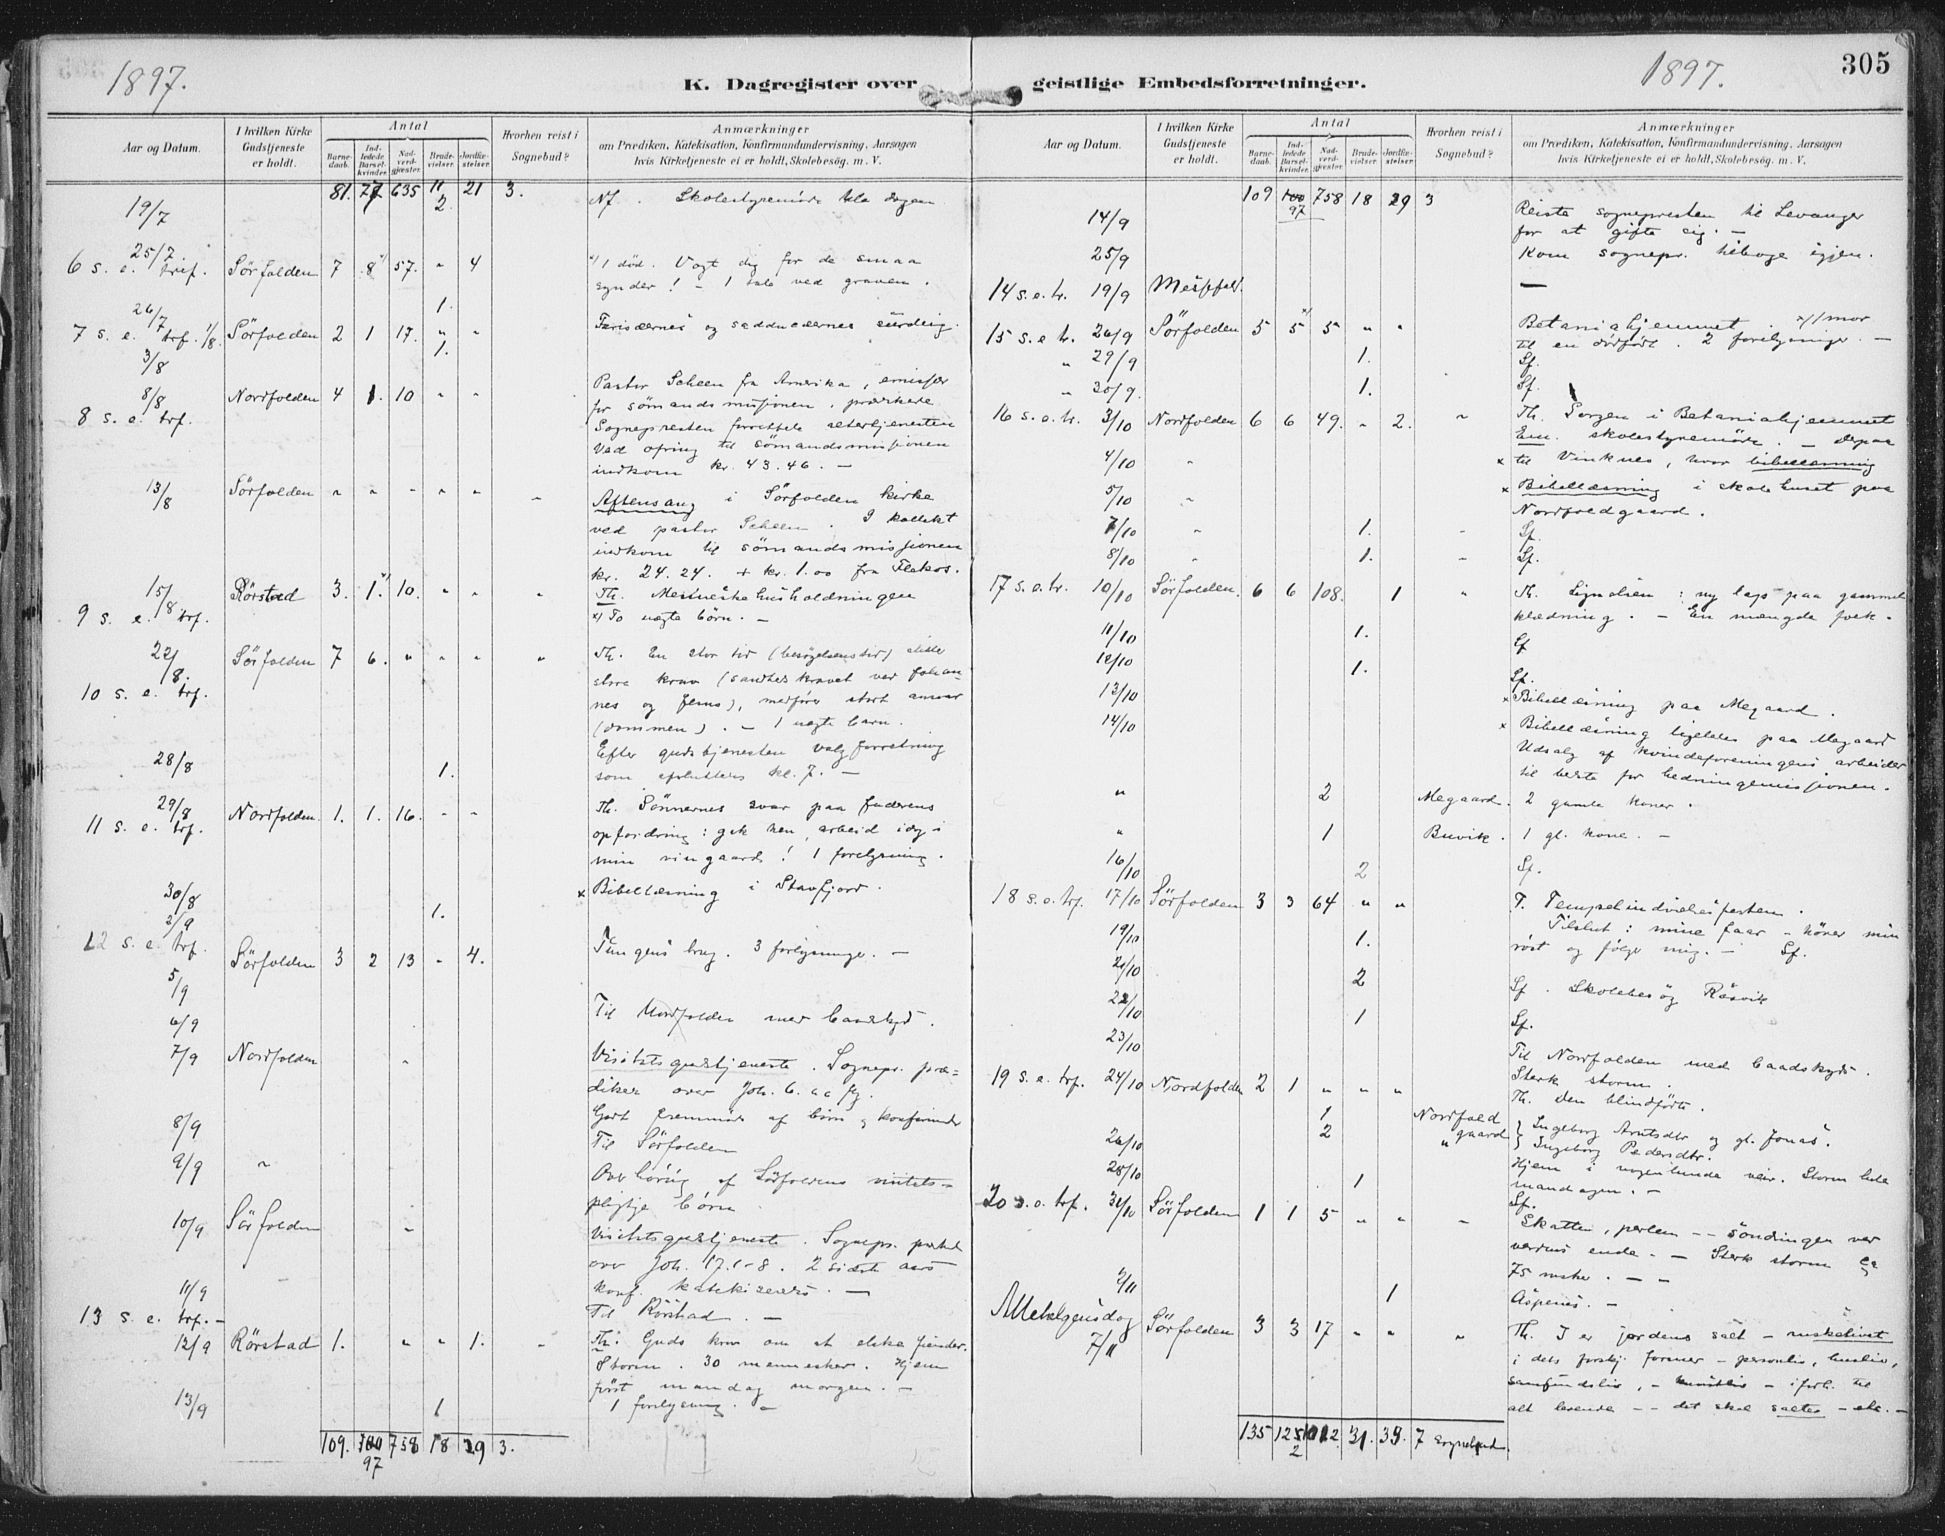 1897.
K. Dagregister over
Aar og Datum.
I hvilken Kirke Gudstjeneste er holdt.
Antal
Barnedaab.
Indledede Barselkvinder.
Nadverdgjæster.
Brudevielser.
Jordfæstelser.
Hvorhen reist i Sognebud?
Anmærkninger
om Prædiken, Katekisation, Konfirmandundervisning, Aarsagen
hvis Kirketjeneste ei er holdt, Skolebesøg. m. V.
81. 77 635 11 21 3.
19/7 2. Nf. Skolestyremöde hele dagen
6 s. e. 25/7 tref. Sörfolden 7 8 57. " 4 1 död. Vogt dig for de smaa
synder! - 1 tale ved graven.
26/7 1.
7 s. e. trf. 1/8 Sörfolden 2 1 17. " " Farisæernes og sadducæernes surdeig.
3/8 1.
8/8 Nordfolden 4 1. 10 " " Pastor Scheen fra Amerika, emissær
8 s. e. trf. for sömandsmisjonen, prækede
Sognepresten forrettede altertjenesten
Ved ofring til sömandsmissionen
indkom kr. 43.46. -
13/8 Sörfolden " " - " " " Aftensang i Sörfolden kirke
ved pastor Scheen. I kollekt
indkom til sömandsmissjonen
kr. 24.24. + kr. 1.00 fra Flekos.
15/8 Rörstad 3. 1. 10. " " " Th. Menneskehusholdningen
9 s. e. trf. x) To uegte börn. -
22/8. Sörfolden 7 6. " " " " Th. En stor tid (besögelsestid) stiller
10 s. e. trf. store krav (sandhedskravet ved Johannes
og Jesus), medförer stort ansvar
(dommen). - 1 uegte barn.
Efter gudstjenesten valgforretning
28/8 1. som afsluttes kl. 7. -
29/8 Nordfolden. 1. 1. 16. - - Th. Sönnernes svar paa faderens
11 s. e. trf. opfordring: gak hen, arbeid idag i
min vingaard! 1 forelysning.
30/8 x Bibellæsning i Stavfjord.
2/9 1.
12 s. e. trf. Sörfolden 3 2 13 - 4. Tungens brug. 3 forlysninge. -
5/9
6/9 Til Nordfolden med baadskyds.
7/9 Nordfolden " Visitatsgudstjeneste. Sognepr. prædiker
over Joh. 6.
8/9 Godt fremmöde af börn og konfirmerede
Til Sörfolden
9/9 " Overhöring af Sörfoldens visitatspligtige
börn.
10/9 Sörfolden " Visitatsgudstjeneste. Sognepr.
over Joh. 17.1-8. 2 sidste aars
11/9 konf. katekiseres. -
13 s. e. trf. - Til Rörstad. -
12/9 Rörstad 1. " " 1. " Th: Guds krav om at elske fiender.
Storm. 30 mennesker. Hjem
först mandag morgen. -
13/9 1 1 forelysning. -
109. 100 758 18 29 3.
97
1897.
305
geistlige Embedsforretninger.
Aar og Datum.
I hvilken Kirke Gudstjeneste er holdt.
Antal
Barnedaab.
Indledede Barselkvinder.
Nadverdgjæster.
Brudevielser.
Jordfæstelser.
Hvorhen reist i Sognebud?
Anmærkninger
om Prædiken, Katekisation, Konfirmandundervisning, Aarsagen
hvis Kirketjeneste ei er holdt, Skolebesøg. m. V.
109 100 758 18 29 3
97
14/9 Reiste sognepresten til Levanger
for at gifte sig. -
25/9 Kom sognepr. tilbage igjen.
14 s. e. tr. 19/9 Messefald. -
15 s. e. tr. 26/9 Sörfolden 5 5 5 " " Betaniahjemmet. x) 1 mor
til en dödfödt. 2 forelysninger. -
" 29/9 1. Sf.
" 30/9. 1. Sf.
16 s. e. tr. 3/10 Nordfolden 6 6 49. " 2. " Th. Sorgen i Betaniahjemmet
Em. skolestyremöde. - Depaa
4/10 " x til Vinknes, hvor bibellæsning
5/10 " x Bibellæsning i skolehuset paa
Nordfoldgaard.
7/10 " 1. " Sf.
8/10 1. " Sf.
17 s. e. tr. 10/10 Sörfolden. 6 6 108. 1 " Th. Lignelsen: ny lap paa gammel
klædning. - En mængde folk.
11/10 1. Sf
12/10 1. Sf.
13/10 x Bibellæsning paa Megaard.
14/10 x Bibellæsning ligeledes paa Megaard
Udsalg af kvindeforeningens arbeider
til bedste for hedningemissjonen.
" 2 Megaard. 2 gamle koner.
" 1 Buvik. 1 gl. kone. -
16/10 2 Sf.
18 s. e. trf. 17/10 Sörfolden 3 3 64 " " T. Tempelindvielsesfesten.
Tilslut: mine faar - hörer min
19/10 1. röst og fölge mig. - Sf.
20/10 2
22/10 1 Sf. Skolebesög Rösvik
23/10 Sf.
Til Nordfolden med baadskyds.
19 s. e. trf. 24/10 Nordfolden 2 1 " " " Sterk storm.
Th. Den blindfödte.
1 Nordfold Ingeborg Arntsdtr og gl. Jonas.
26/10 2 " gaard Ingeborg Pedersdtr.
28/10 1 Hjem i nogenlunde veir. Storm hele
mandagen. -
Sf.
20 s. e. trf. 31/10 Sörfolden 1 1 5 " " " Skatten, perlen -- söndringen ved
verdens ende. - Sterk storm Ca
75 msker. - -
2/11 1 Aspenes. -
Allehelgensdag 7/11 Sörfolden 3 3 17 " " " Th. I er jordens salt - msketivet
i dets forskj. former - personliv, husliv,
samfundsliv, - - i forh. til
alt levende -- det skal saltes - etc. -
135 125 1012 31. 35. 7 sognebud.
2